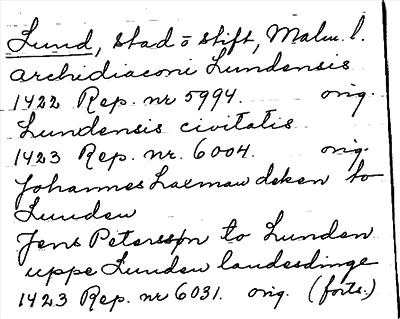 Lund, stad o stift, Malm. l.
archidiaconi Lundensis
1422 Rep. nr 5994. orig.
Lundensis civitatis
1423 Rep. nr. 6004. orig.
Johannes Laxman deken to
Lunden
Jens Petersson to Lunden
uppe Lunden landesdinge
1423 Rep. nr 6031. orig. (forts.)